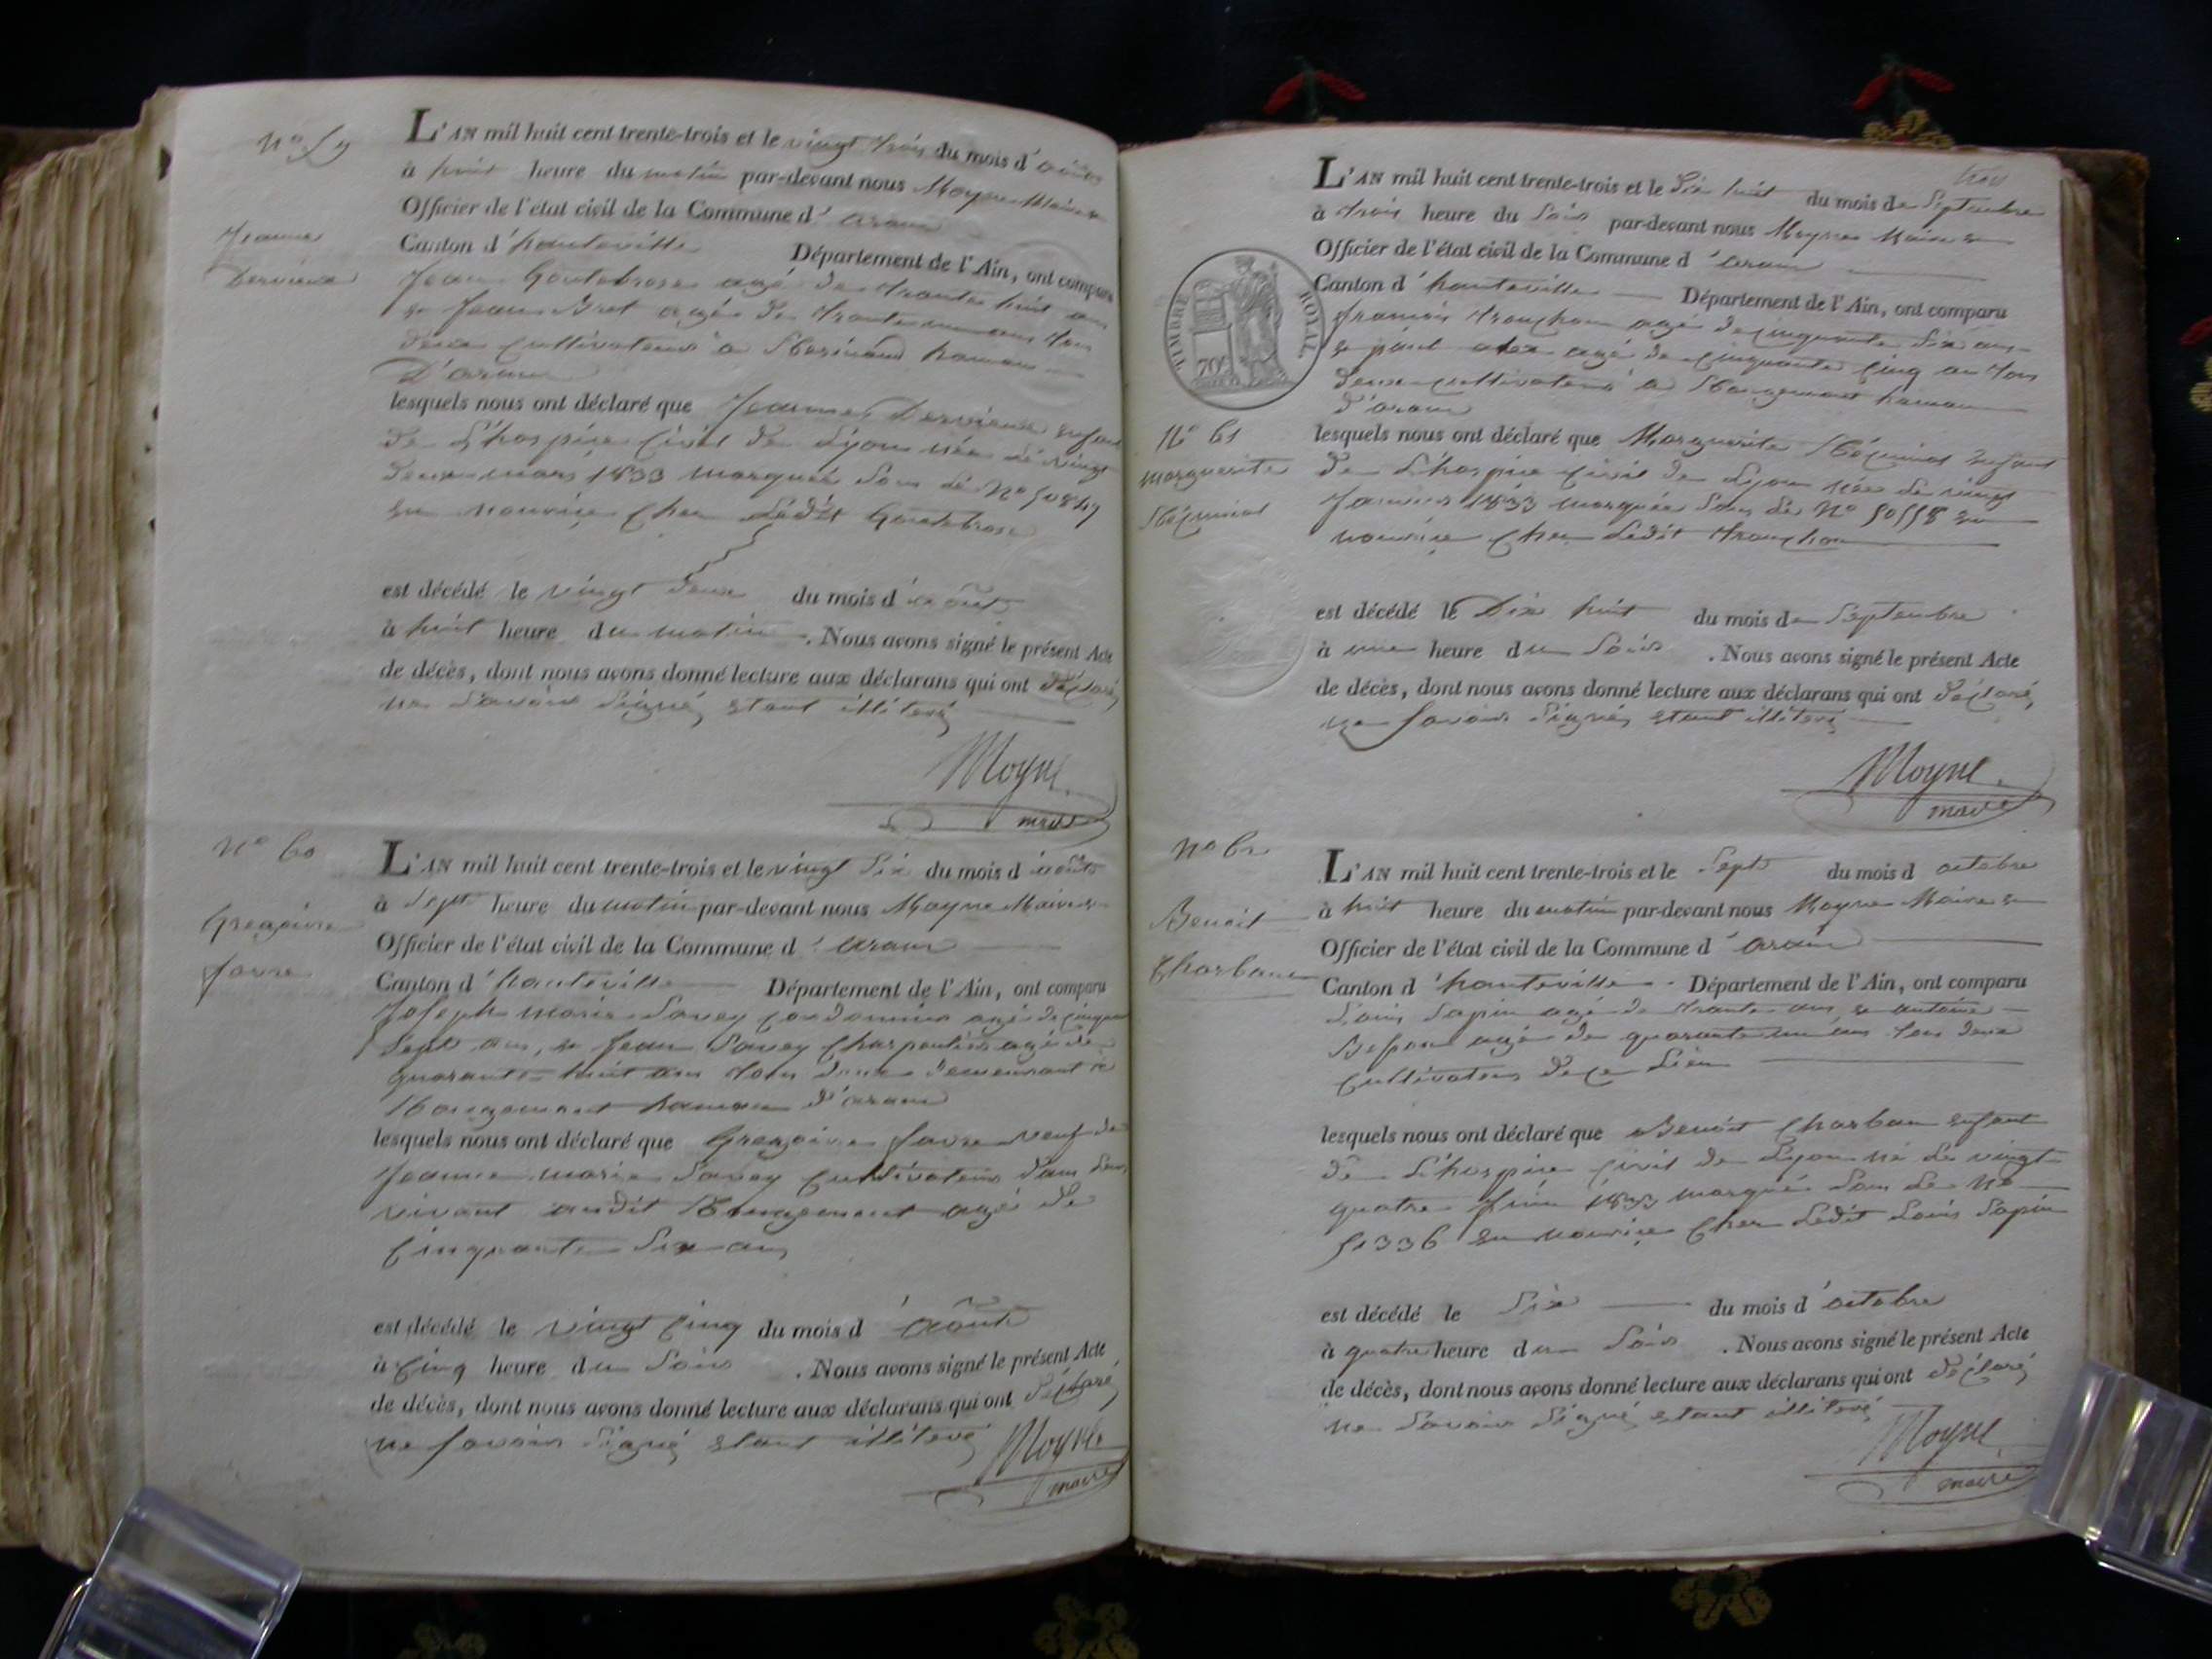 N° 59
Jeanne
Dervieux
L'AN mil huit cent trente-trois et le vingt trois du mois d'août
à huit heure du matin par-devant nous Moyne Maire
Officier de l'état civil de la Commune d'aranc
Canton d'hauteville Département de l'Ain, ont comparu
Jean Goutebrose agé de trante huit ans
et Jean Bret agé de trante un ans tous
deux cultivateurs a hamau
D'aranc
lesquels nous ont déclaré que Jeanne Dervieux enfant
de L'hospice Civil de Lyon née le vingt
deux mars 1833 marquée sous le N° 50849
en nourice chez Ledit Goutebrose
est décédé le vingt deux du mois d'août
à huit heure du matin. Nous avons signé le présent Acte
de décès, dont nous avons donné lecture aux déclarans qui ont déclaré
ne savoir signé, etant illiteré
Moyne
maire
N° 60
Gregoire
favre
L'AN mil huit cent trente-trois et le vingt six du mois d'août
à sept heure du matin par-devant nous Moyne Maire et
Officier de l'état civil de la Commune d'aranc
Canton d'hauteville Département de l'Ain, ont comparu
Joseph marie Savey cordonnier agé de cinquante
sept ans, et Jean Savey Charpentier agé de
quarante huit ans tous deux demeurant a
Rougemont hamau d'aranc
lesquels nous ont déclaré que Gregoire favre veuf de
Jeanne marie Savey cultivateur dans son
vivant audit Rougemont agé de
Cinquante six ans
est décédé le vingt cinq du mois d'août
à cinq heure du soir. Nous avons signé le présent Acte
de décès, dont nous avons donné lecture aux déclarans qui ont déclaré
ne savoir signé etant illiteré
Moyne
maire
TIMBRE ROYAL
70c
N° 61
marguerite
L'AN mil huit cent trente-trois et le dix huit du mois de Septembre
à trois heure du soir par-devant nous Moyne Maire et
Officier de l'état civil de la Commune d'aranc
Canton d'hauteville Département de l'Ain, ont comparu
françois tronchon agé de cinquante six ans
et paul agé de cinquante cinq an tous
deux cultivateurs a Rougemont hamau
d'aranc
lesquels nous ont déclaré que Marguerite enfant
de L'hospice civil de Lyon née le vingt
Janvier 1833 marquée sous le N° 50558 en
nourice chez Ledit tronchon
est décédé le Dix huit du mois de Septembre
à une heure du soir. Nous avons signé le présent Acte
de décès, dont nous avons donné lecture aux déclarans qui ont déclaré,
ne savoir signé, etant illiteré
Moyne
maire
N° 62
Benoit
Charbau
L'AN mil huit cent trente-trois et le sept du mois d octobre
à huit heure du matin par-devant nous Moyne Maire et
Officier de l'état civil de la Commune d'aranc
Canton d'hauteville. Département de l'Ain, ont comparu
Louis Sapin agé de trante ans et antoine
agé de quarante un ans tous deux
cultivateurs de ce Lieu
lesquels nous ont déclaré que Benoit Charbau enfant
de L'hospice civil de Lyon né le vingt
quatre Juin 1833 marqué sous le N°
51336 en nourice chez Ledit Louis Sapin
est décédé le six du mois d'octobre
à quatre heure du soir. Nous avons signé le présent Acte
de décès, dont nous avons donné lecture aux déclarans qui ont déclaré
ne savoir signé etant illiteré
Moyne
maire